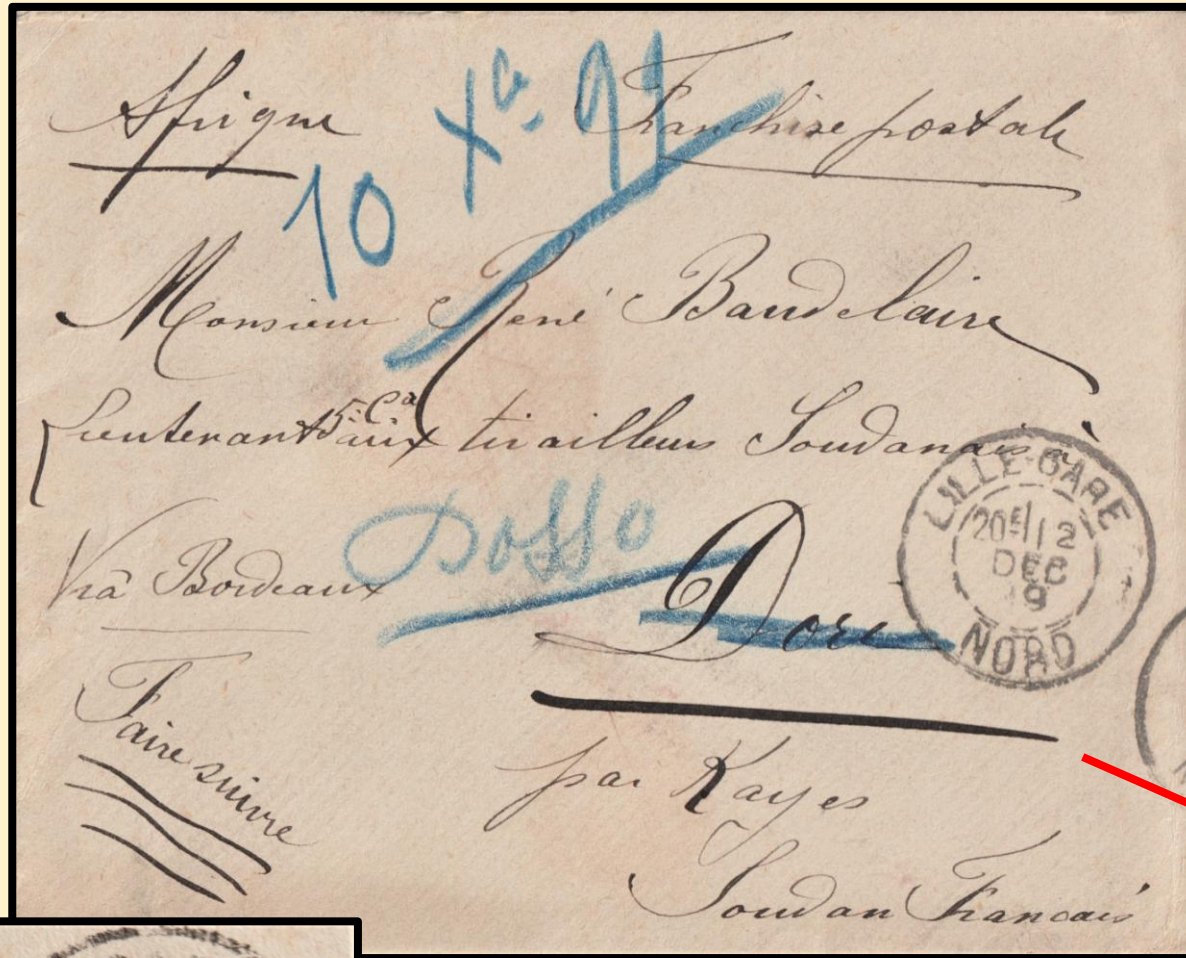 Afrique
Franchise postale
10 Xe. 99
Monsieur René Baudelaire
Lieutenant 5e. Cie aux tirailleurs Soudanais à
Dosso
Via Bordeaux
Dori
LILLE-GARE
12
DEC
NORD
Faire suivre
par Kayes
Soudan Francais